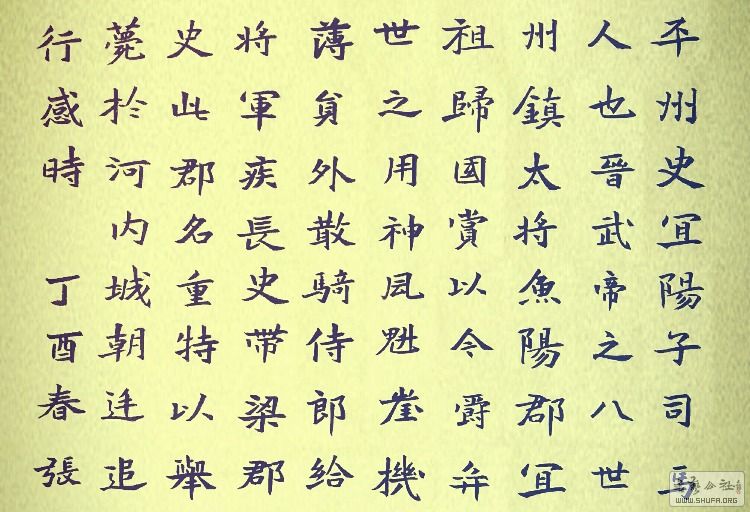 平州史宜陽子司
人也晉武帝之八世
州鎮太將魚陽郡宜
祖歸國賞以今爵并
世之用神風魁崖機
薄貟外散騎侍郎給
將軍疾長史带梁郡
史此郡名重特以舉
薨於河内城朝廷追
行感時 丁酉春張
WWW.SHUFA.ORG